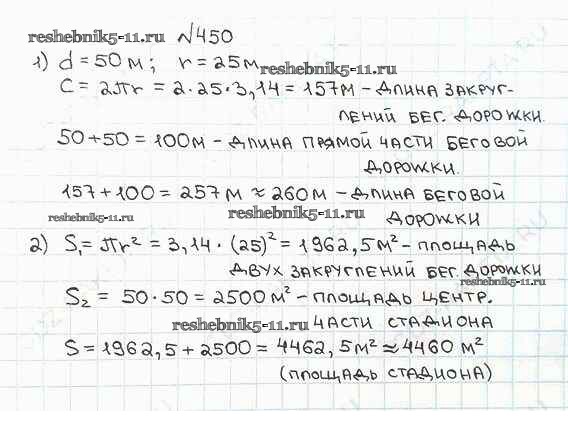 reshebnik5-11.ru №450
1) d = 50 м; r = 25 м reshebnik5-11.ru
C = 2πr = 2·25·3,14 = 157 м - длина закруг-
лений бег. дорожки.
50+50 = 100 м - длина прямой части беговой
дорожки.
157 + 100 = 257 м ≈ 260 м - длина беговой
reshebnik5-11.ru reshebnik5-11.ru дорожки
2) S₁ = πr² = 3,14 · (25)² = 1962,5 м² - площадь
двух закруглений бег. дорожки
reshebnik5-11.ru
S₂ = 50·50 = 2500 м² - площадь центр.
reshebnik5-11.ru части стадиона
S = 1962,5 + 2500 = 4462,5 м² ≈ 4460 м²
(площадь стадиона)